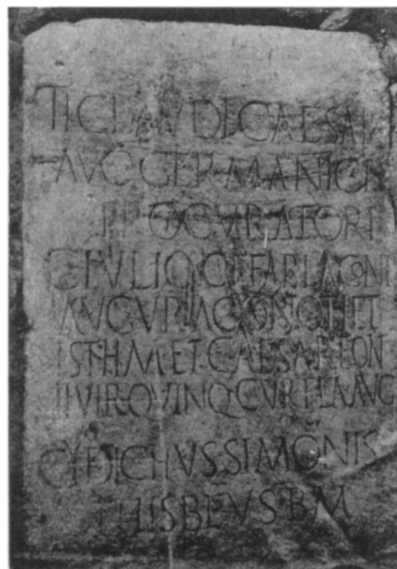 TI CLAVDI CAESAR
AVG GERMANICI
PROCVRATORI
C IVLIO C F FAB LACONI
AVGVRI AGONOTHET
ISTHM ET CAESAREON
IIVIR QVINQ CVR FLA AVG
CYDICHVS SIMONIS
THISBEVS B M